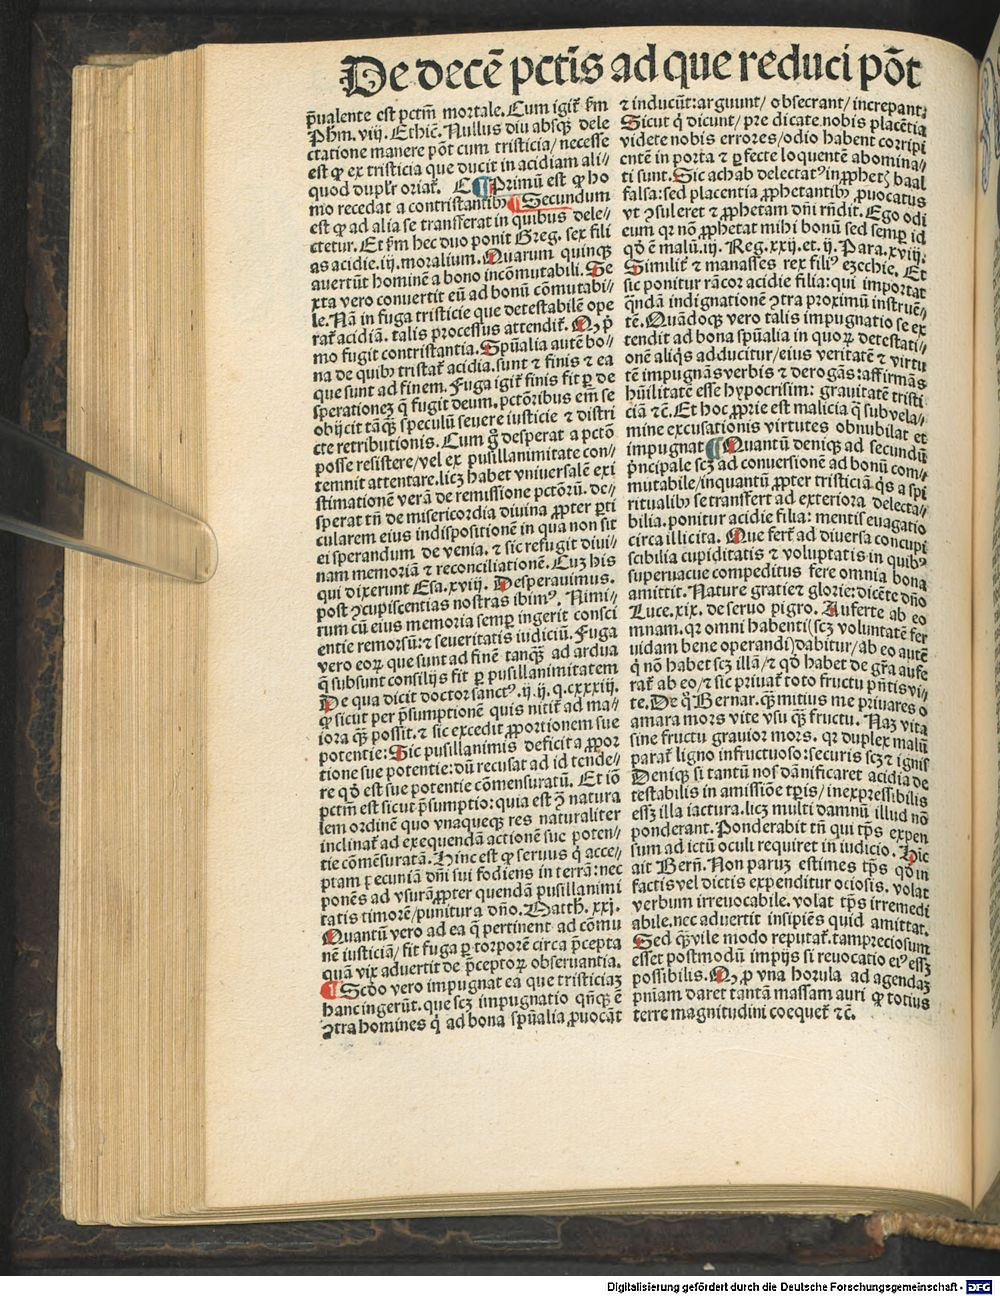 De decē pctīs ad que reduci pōt
p̄ualente est pctm̄ mortale. Cum igit̄ s̄m
Ph̄m. viij. Ethic̄. Nullus diu absq̄ dele
ctatione manere pōt cum tristicia/ necesse
est ꝙ ex tristicia que ducit in acidiam ali⸗
quod duplr̄ oriat̄. C ¶ Primū est ꝙ ho
mo recedat a contristantibꝫ ¶ Secundum
est ꝙ ad alia se transferat in quibus dele⸗
ctetur. Et s̄m hec duo ponit Greg. sex fili
as acidie. iij. moralium. Quarum quinqꝫ
auertūt hominē a bono incōmutabili. Se
xta vero conuertit eū ad bonū cōmutabi⸗
le. Nā in fuga tristicie que detestabilē ope
rat̄ acidiā. talis processus attendit̄. Nꝫ p̄
mo fugit contristantia. Spūalia autē bo⸗
na de quibꝫ tristat̄ acidia. sunt ⁊ finis ⁊ ea
que sunt ad finem. Fuga igit̄ finis fit ꝑ de
sperationeꝫ q̄ fugit deum. pctōribus em̄ se
obijcit tāqꝫ speculū seuere iusticie ⁊ distri
cte retributionis. Cum g̊ desperat a pctō
posse resistere/ vel ex pusillanimitate con⸗
temnit attentare. licꝫ habet vniuersalē exi
stimationē verā de remissione pctōrū. de⸗
sperat tn̄ de misericordia diuina ꝓpter ꝑti
cularem eius indispositionē in qua non sit
ei sperandum de venia. ⁊ sic refugit diui⸗
nam memoriā ⁊ reconciliationē. Cuꝫ his
qui dixerunt Esa. xviij. Desperauimus.
post ꝯcupiscentias nostras ibimꝰ. Nimi⸗
rum cū eius memoria semꝑ ingerit consci
entie remorsū: ⁊ seueritatis iudiciū. Fuga
vero eoꝝ que sunt ad finē tanqꝫ ad ardua
q̄ subsunt consilijs fit ꝑ pusillanimitatem
De qua dicit doctor sanctꝰ. ij. ij. q. cxxxiij.
ꝙ sicut per p̄sumptionē quis nitit̄ ad ma⸗
iora qꝫ possit. ⁊ sic excedit ꝓportionem sue
potentie: Sic pusillanimis deficit a ꝓpor
tione sue potentie: dū recusat ad id tende⸗
re qd̓ est sue potentie cōmensuratū. Et iō
pctm̄ est sicut p̄sumptio: quia est ꝯ natura
lem ordinē quo vnaqueqꝫ res naturaliter
inclinat̄ ad exequendā actionē sue poten⸗
tie cōmēsuratā. Hinc est ꝙ seruus q̇ acce⸗
ptam pecuniā dn̄i sui fodiens in terrā: nec
ponēs ad vsurā ꝓpter quendā pusillanimi
tatis timorē/ punitur a dn̄o. Matth. xxj.
Quantū vero ad ea q̄ pertinent ad cōmu
nē iusticiā/ fit fuga ꝑ torporē circa p̄cepta
quā vix aduertit de p̄ceptoꝝ obseruantia.
¶ Scd̓o vero impugnat ea que tristiciaꝫ
hanc ingerūt. que scꝫ impugnatio qn̄qꝫ ē
ꝯtra homines q̇ ad bona spūalia ꝓuocāt
⁊ inducūt: arguunt/ obsecrant/ increpant:
Sicut q̇ dicunt/ predicate nobis placētia
videte nobis errores/ odio habent corripi
entē in porta ⁊ ꝑfecte loquentē abomina⸗
ti sunt. Sic achab delectatꝰ in ꝓphetꝭ baal
falsa: sed placentia ꝓphetantibꝫ ꝓuocatus
vt ꝯsuleret ⁊ ꝓphetam dn̄i rn̄dit. Ego odi
eum qꝛ nō ꝓphetat mihi bonū sed semꝑ id
qd̓ ē malū. iij. Reg. xxij. et. ij. Para. xviij.
Similit̄ ⁊ manasses rex filiꝰ eȝechie. Et
sic ponitur rācor acidie filia: qui importat
qn̄dā indignationē ꝯtra proximū instruē⸗
tē. Quādoqꝫ vero talis impugnatio se ex
tendit ad bona spūalia in quoꝝ detestati⸗
onē aliq̄s adducitur/ eius veritatē ⁊ virtu
tē impugnās verbis ⁊ derogās: affirmās
hūilitatē esse hypocrisim: grauitatē tristi
ciā ⁊c̄. Et hoc ꝓprie est malicia q̄ sub vela⸗
mine excusationis virtutes obnubilat et
impugnat ¶ Quantū deniqꝫ ad secundū
p̄ncipale scꝫ ad conuersionē ad bonū com⸗
mutabile/ inquantū ꝓpter tristiciā q̇s a spi
ritualibꝫ se transfert ad exteriora delecta⸗
bilia. ponitur acidie filia: mentis euagatio
circa illicita. Que fert̄ ad diuersa concupi
scibilia cupiditatis ⁊ voluptatis in quibꝰ
superuacue compeditus fere omnia bona
amittit. Nature gratie ⁊ glorie: dicēte dn̄o
Luce. xix. de seruo pigro. Auferte ab eo
mnam. qꝛ omni habenti (scꝫ voluntatē fer
uidam bene operandi) dabitur/ ab eo autē
q̇ nō habet scꝫ illā/ ⁊ qd̓ habet de gr̄a aufe
rat̄ ab eo/ ⁊ sic priuat̄ toto fructu pn̄tis vi⸗
te. De q̊ Bernar. qꝫ mitius me priuares o
amara mors vite vsu qꝫ fructu. Naꝫ vita
sine fructu grauior mors. qꝛ duplex malū
parat̄ ligno infructuoso: securis scꝫ ⁊ ignis
Deniqꝫ si tantū nos dānificaret acidia de
testabilis in amissiōe tp̄is/ inexpressibilis
essꝫ illa iactura. licꝫ multi damnū illud nō
ponderant. Ponderabit tn̄ qui tp̄s expen
sum ad ictū oculi requiret in iudicio. Hic
ait Bern̄. Non paruꝫ estimes tp̄s qd̓ in
factis vel dictis expenditur ociosis. volat
verbum irreuocabile. volat tp̄s irremedi
abile. nec aduertit insipiēs quid amittat.
Sed qꝫ vile modo reputat̄. tam preciosum
esset postmodū impijs si reuocatio eiꝰ essꝫ
possibilis. Nꝫ ꝓ vna horula ad agendaꝫ
pn̄iam daret tantā massam auri ꝙ totius
terre magnitudini coequet̄ ⁊c̄.
Digitalisierung gefördert durch die Deutsche Forschungsgemeinschaft - DFG